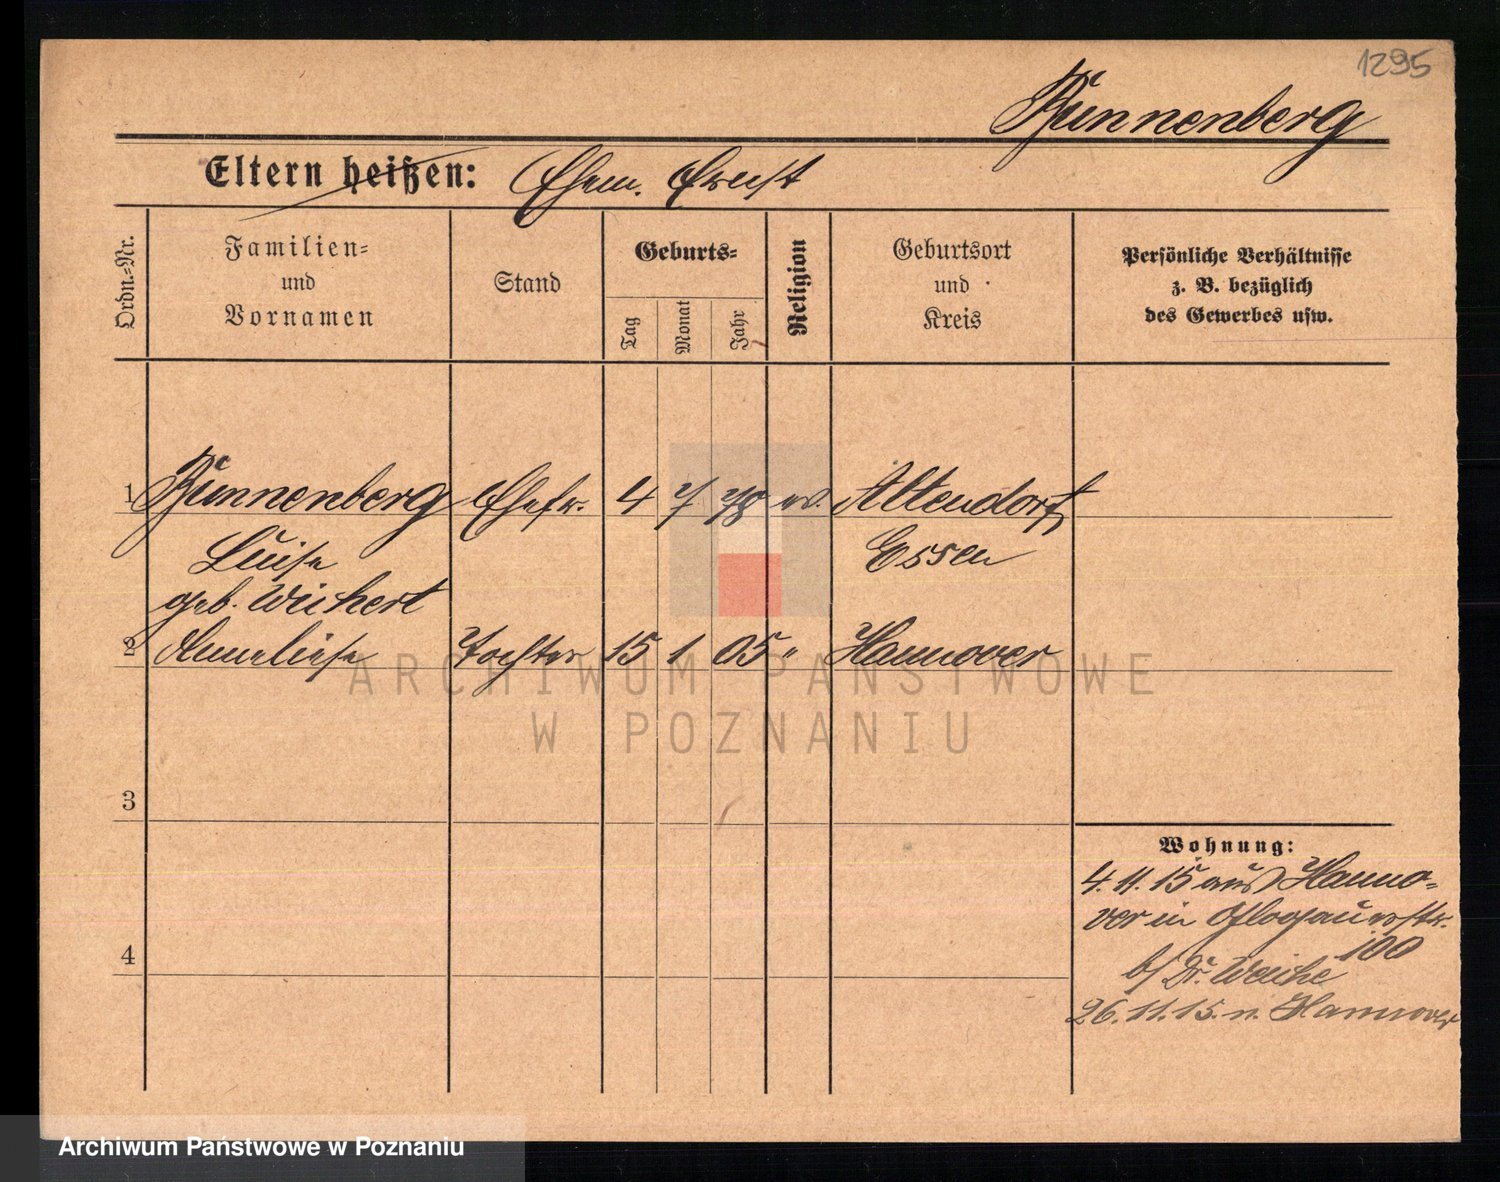 1295
Bünnenberg
Eltern heißen: Ehem. Ernst
Ordn.-Nr.
Familien-
und
Vornamen
Stand
Geburts-
Tag
Monat
Jahr
Religion
Geburtsort
und
Kreis
Persönliche Verhältnisse
z. B. bezüglich
des Gewerbes usw.
1 Bünnenberg Ehefr. 4 7 78 ev. Altendorf
Luise Essen
geb. Wichert
2 Anneliese Tochter 15 1 05 " Hannover
ARCHIWUM PAŃSTWOWE
W POZNANIU
3
4
Wohnung:
4.11.15 aus Hanno-
ver in Glogauerstr.
100
b/ Dr. Weiche
26.11.15. n. Hannover
Archiwum Państwowe w Poznaniu